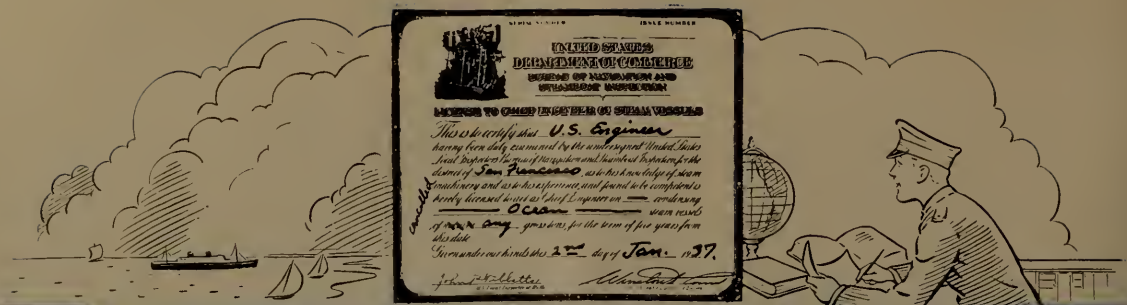 SERIAL NUMBER ISSUE NUMBER
UNITED STATES
DEPARTMENT OF COMMERCE
BUREAU OF NAVIGATION AND
STEAMBOAT INSPECTION
LICENSE TO CHIEF ENGINEER OF STEAM VESSELS
This is to certify that U.S. Engineer
having been duly examined by the undersigned United States
Local Inspectors Bureau of Navigation and Steamboat Inspection for the
district of San Francisco, as to his knowledge of steam
machinery and as to his experience, and found to be competent is
hereby licensed to act as Chief Engineer on condensing
Ocean steam vessels
of any gross tons, for the term of five years from
this date.
Given under our hands this 2nd day of Jan. 1937.
cancelled
John